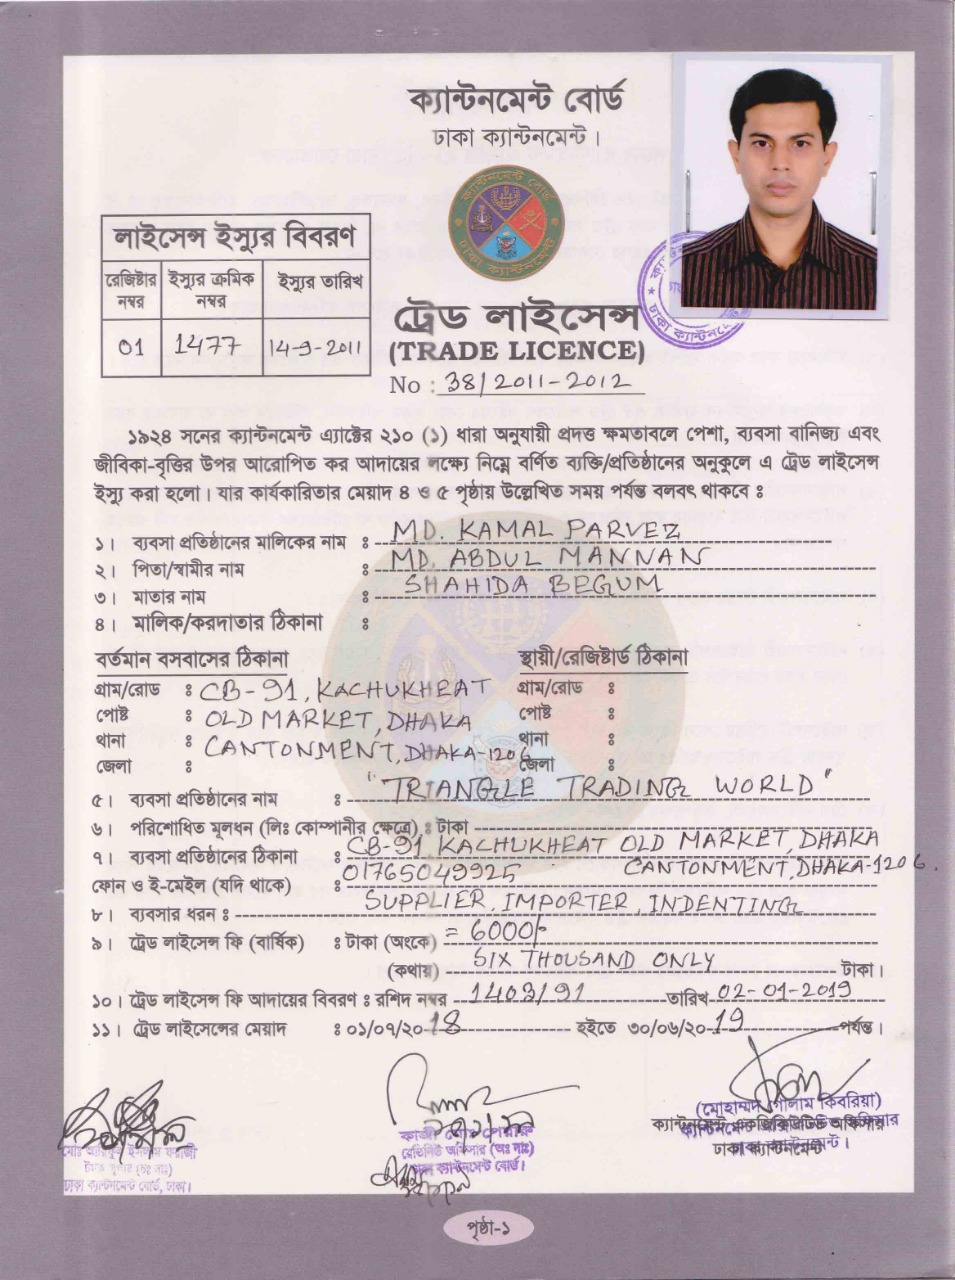 ক্যান্টনমেন্ট বোর্ড
ঢাকা ক্যান্টনমেন্ট।
ক্যান্টনমেন্ট বোর্ড
ঢাকা ক্যান্টনমেন্ট
লাইসেন্স ইস্যুর বিবরণ
রেজিষ্টার নম্বর ইস্যুর ক্রমিক নম্বর ইস্যুর তারিখ
01 1477 14-9-2011
ট্রেড লাইসেন্স
(TRADE LICENCE)
No : 38/2011-2012
১৯২৪ সনের ক্যান্টনমেন্ট এ্যাক্টের ২১০ (১) ধারা অনুযায়ী প্রদত্ত ক্ষমতাবলে পেশা, ব্যবসা বানিজ্য এবং
জীবিকা-বৃত্তির উপর আরোপিত কর আদায়ের লক্ষ্যে নিম্নে বর্ণিত ব্যক্তি/প্রতিষ্ঠানের অনুকুলে এ ট্রেড লাইসেন্স
ইস্যু করা হলো। যার কার্যকারিতার মেয়াদ ৪ ও ৫ পৃষ্ঠায় উল্লেখিত সময় পর্যন্ত বলবৎ থাকবে ঃ
১। ব্যবসা প্রতিষ্ঠানের মালিকের নাম ঃ MD. KAMAL PARVEZ
২। পিতা/স্বামীর নাম ঃ MD. ABDUL MANNAN
৩। মাতার নাম ঃ SHAHIDA BEGUM
৪। মালিক/করদাতার ঠিকানা ঃ
বর্তমান বসবাসের ঠিকানা স্থায়ী/রেজিষ্টার্ড ঠিকানা
গ্রাম/রোড ঃ CB-91, KACHUKHEAT গ্রাম/রোড ঃ
পোষ্ট ঃ OLD MARKET, DHAKA পোষ্ট ঃ
থানা ঃ CANTONMENT, DHAKA-1206 থানা ঃ
জেলা ঃ জেলা ঃ
৫। ব্যবসা প্রতিষ্ঠানের নাম ঃ "TRIANGLE TRADING WORLD"
৬। পরিশোধিত মূলধন (লিঃ কোম্পানীর ক্ষেত্রে) ঃ টাকা
৭। ব্যবসা প্রতিষ্ঠানের ঠিকানা ঃ CB-91, KACHUKHEAT OLD MARKET, DHAKA
CANTONMENT, DHAKA-1206.
ফোন ও ই-মেইল (যদি থাকে) ঃ 01765049925
৮। ব্যবসার ধরন ঃ SUPPLIER, IMPORTER, INDENTING
৯। ট্রেড লাইসেন্স ফি (বার্ষিক) ঃ টাকা (অংকে) = 6000/-
(কথায়) SIX THOUSAND ONLY টাকা।
১০। ট্রেড লাইসেন্স ফি আদায়ের বিবরণ ঃ রশিদ নম্বর 1403/91 তারিখ 02-01-2019
১১। ট্রেড লাইসেন্সের মেয়াদ ঃ ০১/০৭/২০18 হইতে ৩০/০৬/২০19 পর্যন্ত।
(মোহাম্মদ গোলাম কিবরিয়া)
ক্যান্টনমেন্ট এক্সিকিউটিভ অফিসার
ঢাকা ক্যান্টনমেন্ট।
রেভিনিউ অফিসার (অঃ দাঃ)
ঢাকা ক্যান্টনমেন্ট বোর্ড।
ঢাকা ক্যান্টনমেন্ট বোর্ড, ঢাকা।
পৃষ্ঠা-১